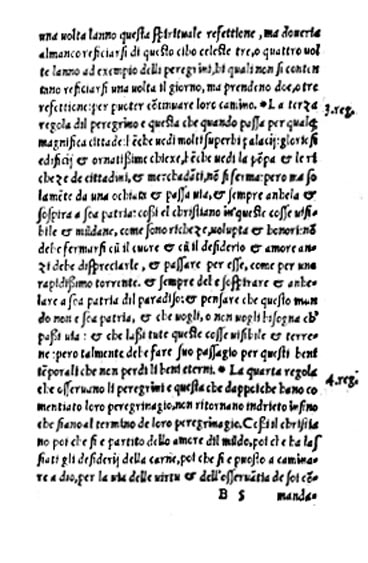 una uolta lanno questa spirituale refettione, ma doueria
almanco reficiarsi di questo cibo celeste tre, o quattro uol
te lanno ad exempio delli peregrini, li quali non si conten
tano reficiarsi una uolta il giorno, ma prendeno doe, o tre
refettione: per puoter cōtinuare loro camino. ❧ La terza
3. reg.
regola dil peregrino e questa che quando passa per qualq̃
magnifica cittade: bēche uedi molti superbi palacij: gloriosi
edificij & ornatissime chiexe, bēche uedi la pōpa & le ri
cheze de cittadini, & merchadāti, nō si ferma: pero ma so
lamēte da una ochiata & passa uia, & sempre anhela &
sospira a soa patria: cosi el christiano in queste cosse uisi=
bile & mūdane, come sono richeze, uolupta & honori: nō
debe fermarsi cū il cuore & cū il desiderio & amore an=
zi debe dispreciarle, & passare per esse, come per uno
rapidissimo torrente. & sempre debe sospirare & anhe=
lare a soa patria dil paradiso: & pensare che questo mun
do non e soa patria, & che uogli, o non uogli bisogna ch̃
passi uia: & che lassi tute queste cosse uisibile & terre=
ne: pero talmente debe fare suo passagio per questi beni
tēporali che non perdi li beni eterni. ❧ La quarta regola
4. reg.
che osseruano li peregrini e questa che dappoiche hano co
mentiato loro peregrinagio, non ritornano indrieto infino
che siano al termino de loro peregrinagio. Cosi il christia
no poi che si e partito dello amore dil mūdo, poi che ha las
siati gli desiderij della carne, poi che si e puosto a camina=
re a dio, per la uia delle uirtu & dell'osseruātia de soi cō=
B 5 manda=